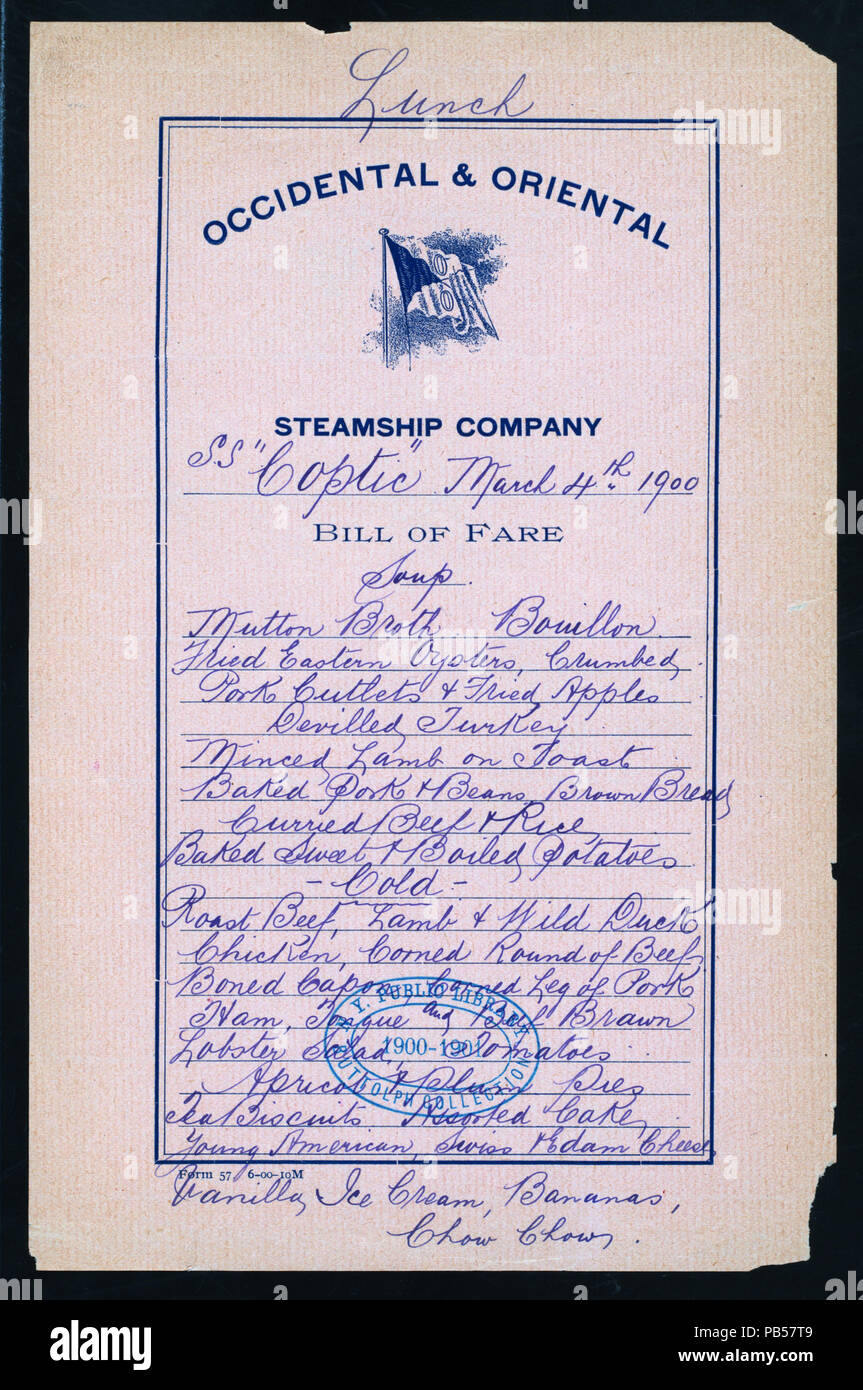 Lunch
OCCIDENTAL & ORIENTAL
O
O
STEAMSHIP COMPANY
SS "Coptic" March 4th 1900
BILL OF FARE
Soup.
Mutton Broth Bouillon
Fried Eastern Oysters, Crumbed
Pork Cutlets & Fried Apples
Devilled Turkey
Minced Lamb on Toast
Baked Pork & Beans Brown Bread
Curried Beef & Rice
Baked Sweet & Boiled Potatoes
- Cold -
Roast Beef, Lamb & Wild Duck
Chicken, Corned Round of Beef
Boned Capon, Corned Leg of Pork
Ham, Tongue and Beef Brawn
Lobster Salad, Tomatoes
Apricot & Plum Pies
Tea Biscuits Assorted Cake
Young American, Swiss & Edam Cheese
N. Y. PUBLIC LIBRARY
1900-1901
BUTTOLPH COLLECTION
Form 57 6-00-10M
Vanilla Ice Cream, Bananas,
Chow Chow.
alamy
PB57T9
www.alamy.com